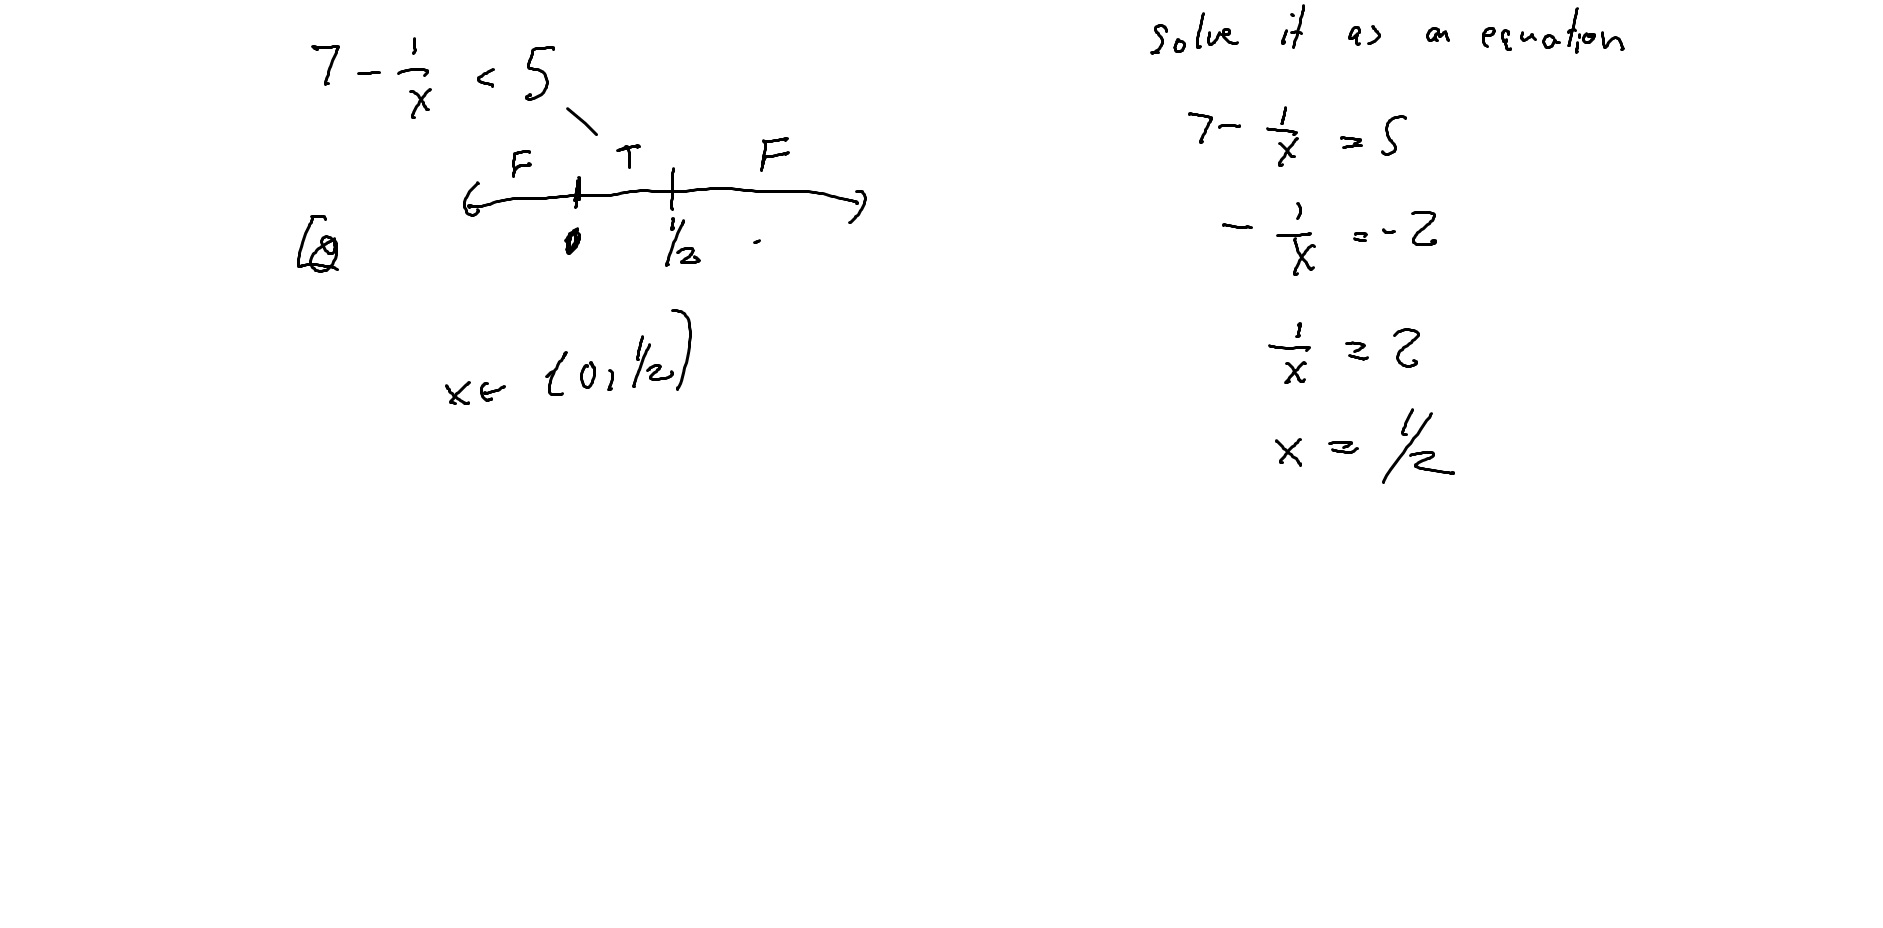 7 - 1/x < 5
F T F
0 1/2
x ∈ (0, 1/2)
solve it as an equation
7 - 1/x = 5
- 1/x = -2
1/x = 2
x = 1/2